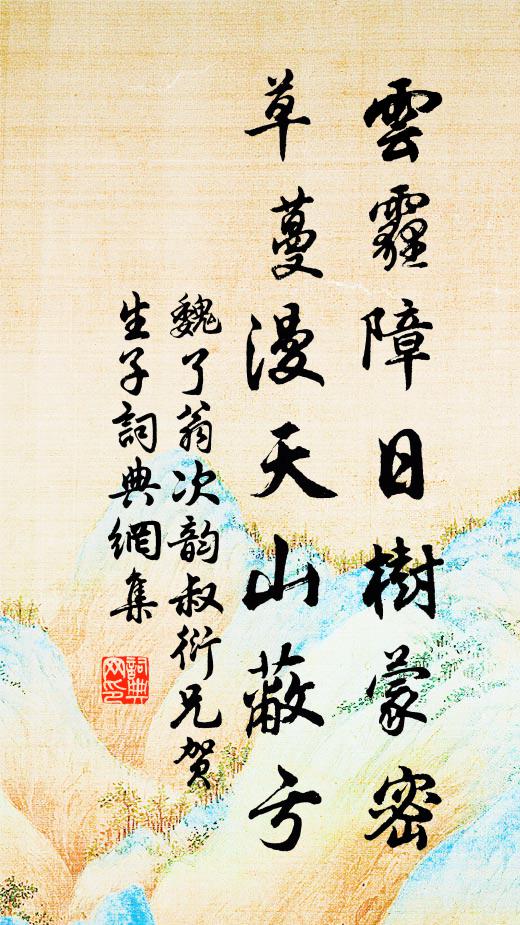 雲霾障日樹蒙密
草蔓漫天山蔽亏
魏了翁次韵叔衍兄賀
生子詞典網集
詞典
网印